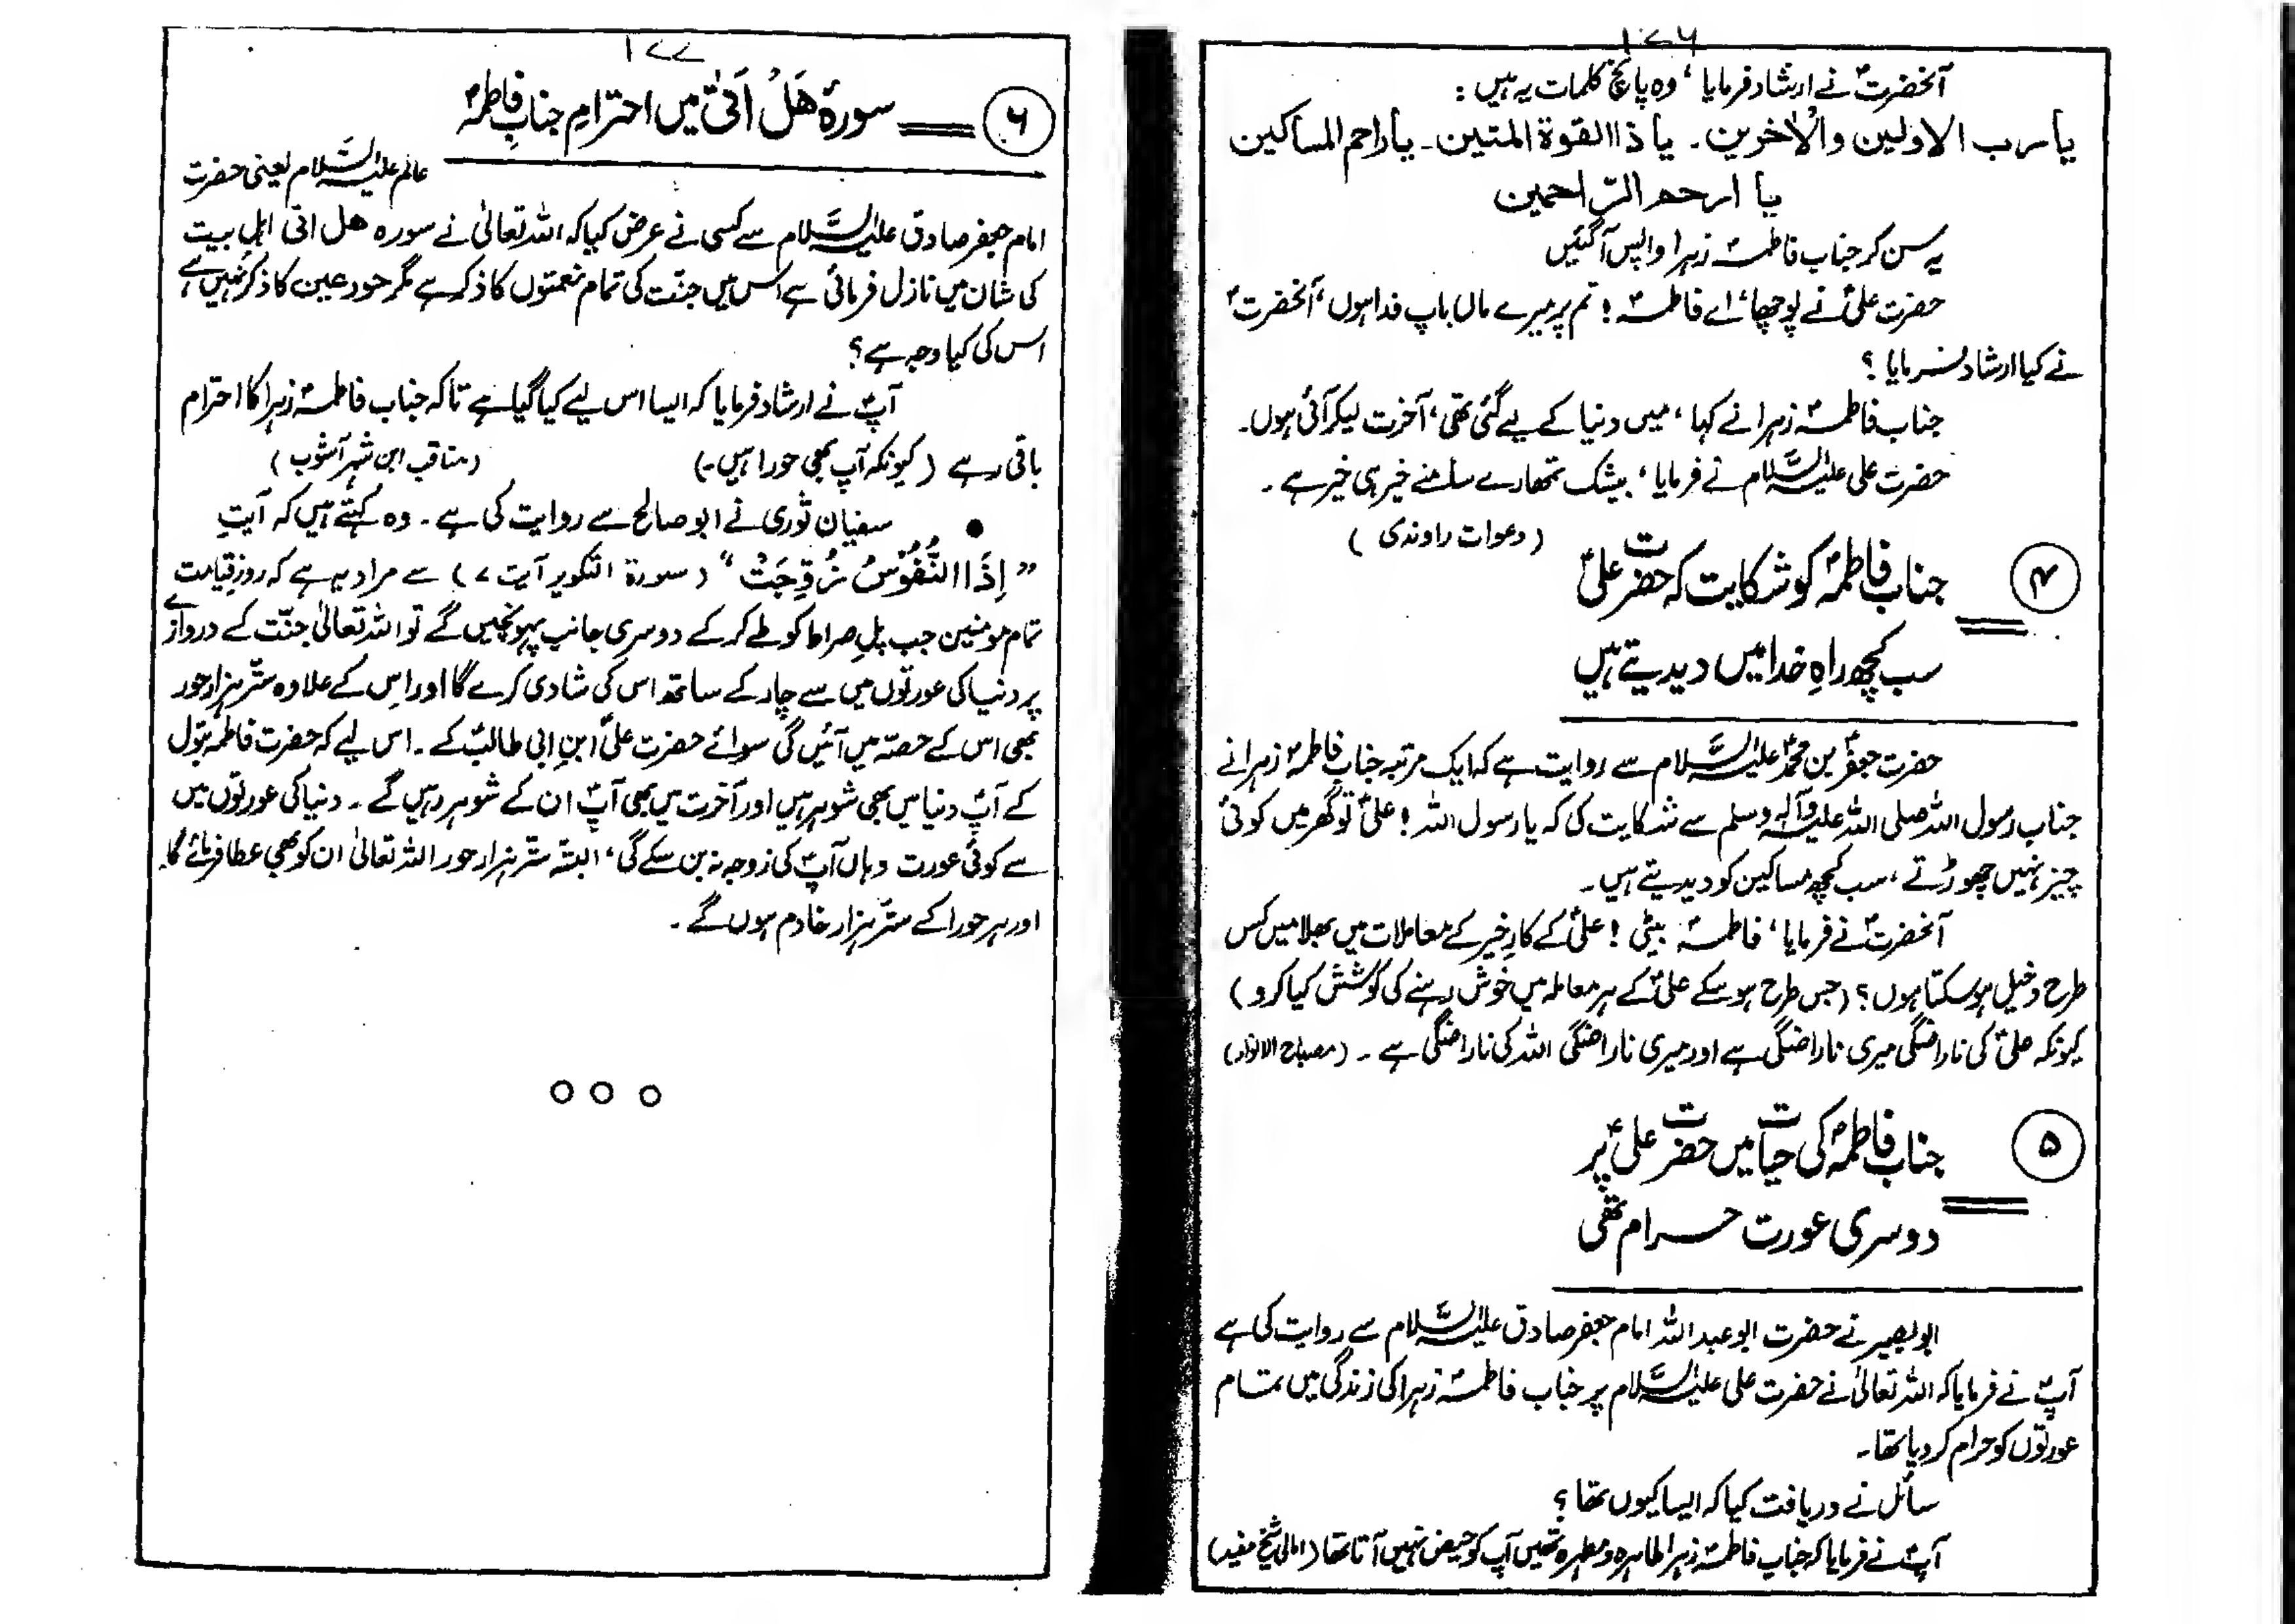 ۱۷۶
آنحضرتؐ نے ارشاد فرمایا، وہ پانچ کلمات یہ ہیں:
یا رب الاولین والاٰخرین۔ یا ذا القوۃ المتین۔ یا راحم المساکین
یا ارحم الرّاحمین
یہ سن کر جناب فاطمہؑ زہرا واپس آگئیں
حضرت علیؑ نے پوچھا، اے فاطمہؑ! تم پر میرے ماں باپ فدا ہوں، آنحضرتؐ
نے کیا ارشاد فرمایا؟
جناب فاطمہؑ زہرا نے کہا، میں دنیا کے لیے گئی تھی، آخرت لیکر آئی ہوں۔
حضرت علی علیہ السّلام نے فرمایا، بیشک تمھارے سامنے خیر ہی خیر ہے۔
(دعوات راوندی)
۴ جناب فاطمہؑ کو شکایت کہ حضرت علیؑ
سب کچھ راہِ خدا میں دیدیتے ہیں
حضرت جعفرؑ بن محمدؑ علیہ السّلام سے روایت ہے کہ ایک مرتبہ جنابِ فاطمہؑ زہرا نے
جناب رسول اللہ صلی اللہ علیہ وآلہ وسلم سے شکایت کی کہ یا رسول اللہ! علیؑ تو گھر میں کوئی
چیز نہیں چھوڑتے، سب کچھ مساکین کو دیدیتے ہیں۔
آنحضرتؐ نے فرمایا، فاطمہؑ بیٹی! علیؑ کے کارِ خیر کے معاملات میں بھلا میں کس
طرح دخیل ہو سکتا ہوں؟ (جس طرح ہو سکے علیؑ کے ہر معاملہ میں خوش رہنے کی کوشش کیا کرو)
کیونکہ علیؑ کی ناراضگی میری ناراضگی ہے اور میری ناراضگی اللہ کی ناراضگی ہے۔ (مصباح الانوار)
۵ جناب فاطمہؑ کی حیات میں حضرت علیؑ پر
دوسری عورت حرام تھی
ابو بصیر نے حضرت ابو عبد اللہ امام جعفر صادق علیہ السّلام سے روایت کی ہے
آپؑ نے فرمایا کہ اللہ تعالیٰ نے حضرت علی علیہ السّلام پر جناب فاطمہؑ زہرا کی زندگی میں تمام
عورتوں کو حرام کر دیا تھا۔
سائل نے دریافت کیا کہ ایسا کیوں تھا؟
آپؑ نے فرمایا کہ جناب فاطمہؑ زہرا طاہرہ و مطہرہ تھیں آپ کو حیض نہیں آتا تھا (امالی شیخ مفید)
۱۷۷
۶ سورۂ هَلْ اَتٰی میں احترامِ جنابِ فاطمہؑ
عالم علیہ السَّلام یعنی حضرت
امام جعفر صادق علیہ السَّلام سے کسی نے عرض کیا کہ اللہ تعالیٰ نے سورہ هل اتی اہلِ بیت
کی شان میں نازل فرمائی ہے اس میں جنّت کی تمام نعمتوں کا ذکر ہے مگر حور عین کا ذکر نہیں ہے
اس کی کیا وجہ ہے؟
آپؑ نے ارشاد فرمایا کہ ایسا اس لیے کیا گیا ہے تاکہ جناب فاطمہؑ زہرا کا احترام
باقی رہے (کیونکہ آپ بھی حورا ہیں۔) (مناقب ابن شہر آشوب)
● سفیان ثوری نے ابو صالح سے روایت کی ہے۔ وہ کہتے ہیں کہ آیتِ
”اِذَا النُّفُوْسُ زُوِّجَتْ“ (سورۃ التکویر آیت ۷) سے مراد یہ ہے کہ روزِ قیامت
تمام مومنین جب پلِ صراط کو طے کر کے دوسری جانب پہونچیں گے تو اللہ تعالیٰ جنّت کے دروازے
پر دنیا کی عورتوں میں سے چار کے ساتھ اس کی شادی کرے گا اور اس کے علاوہ ستّر ہزار حور
بھی اس کے حصہ میں آئیں گی سوائے حضرت علیؑ ابنِ ابی طالبؑ کے۔ اس لیے کہ حضرت فاطمہؑ بتول
کے آپؑ دنیا میں بھی شوہر ہیں اور آخرت میں بھی آپؑ ان کے شوہر رہیں گے۔ دنیا کی عورتوں میں
سے کوئی عورت وہاں آپؑ کی زوجہ نہ بن سکے گی، البتہ ستّر ہزار حور اللہ تعالیٰ ان کو بھی عطا فرمائے گا۔
اور ہر حورا کے ستّر ہزار خادم ہوں گے۔
○ ○ ○